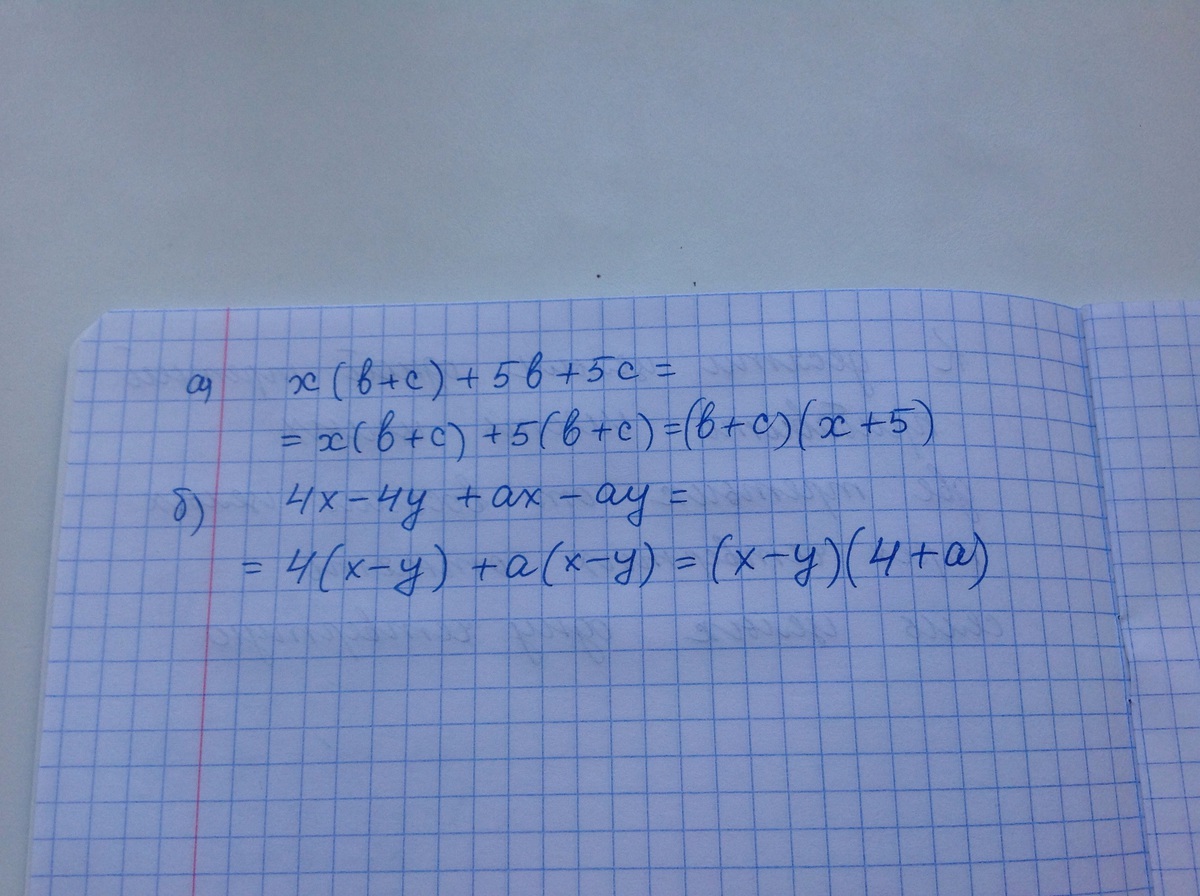 а) x(в+c)+5в+5c=
=x(в+c)+5(в+c)=(в+c)(x+5)
б) 4x-4y+ax-ay=
=4(x-y)+a(x-y)=(x-y)(4+a)